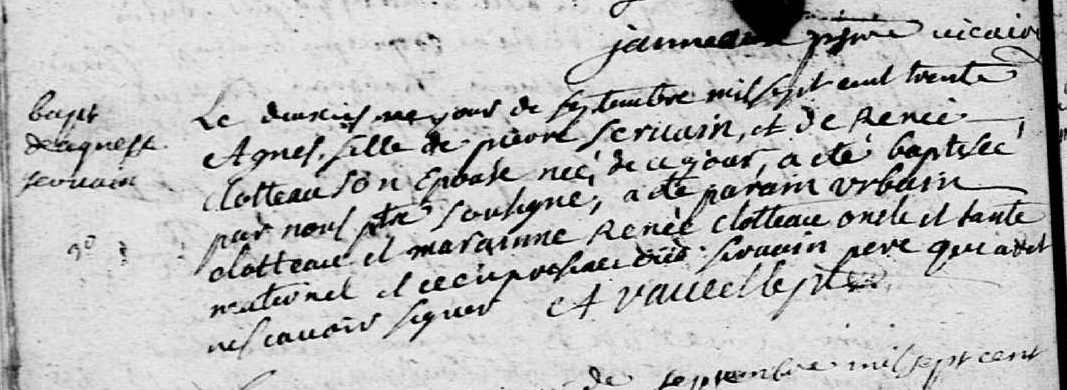 janneau ptre vicaire
bapt
d'agnesse
servain
Le jour de septembre mil sept cent trente
Agnes, fille de pierre Servain, et de Renée
Clotteau son Epouse neé de ce jour, a eté baptisée
par nous ptre soussigné, a eté parain urbain
clotteau et marainne Renée Clotteau oncle et tante
maternel et ce en presence servain pere qui a dit
ne scavoir signer A ptre
9º
de septembre mil sept cent